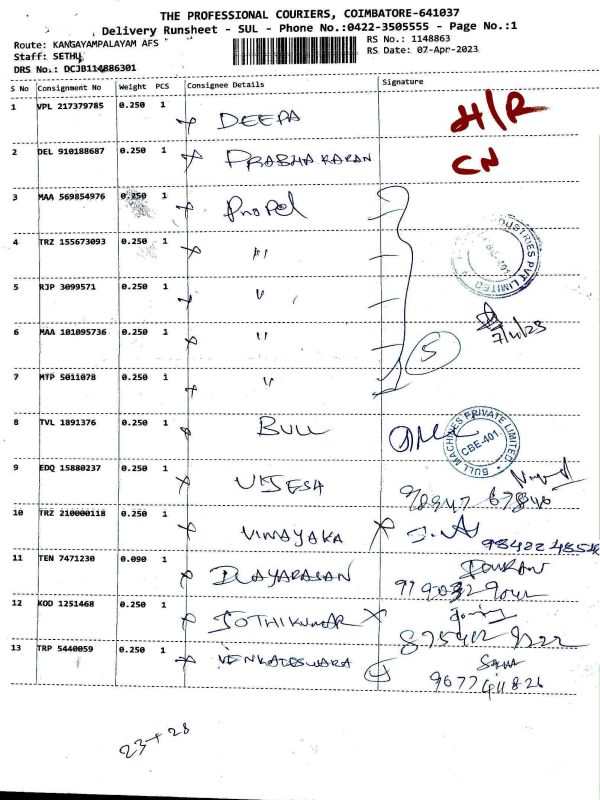 THE PROFESSIONAL COURIERS, COIMBATORE-641037
Delivery Runsheet - SUL - Phone No.:0422-3505555 - Page No.:1
Route: KANGAYAMPALAYAM AFS
RS No.: 1148863
Staff: SETHU
RS Date: 07-Apr-2023
DRS No.: DCJB114886301
S No Consignment No Weight PCS Consignee Details Signature
1 VPL 217379785 0.250 1 DEEPA H/R
2 DEL 910188687 0.250 1 PRABHAKARAN CN
3 MAA 569854976 0.250 1 Propel
4 TRZ 155673093 0.250 1 "
5 RJP 3099571 0.250 1 "
6 MAA 101095736 0.250 1 "
7 MTP 5011078 0.250 1 "
5
INDUSTRIES PVT LIMITED
CBE-401
7/4/23
8 TVL 1891376 0.250 1 BULL
BULL MACHINES PRIVATE LIMITED
CBE-401.
9 EDQ 15880237 0.250 1 VIJESH
10 TRZ 210000118 0.250 1 VINAYAKA
11 TEN 7471230 0.090 1 ILAYARASAN
12 KOD 1251468 0.250 1 JOTHIKUMAR
13 TRP 5440059 0.250 1 VENKATESWARA
9677411826
23+28